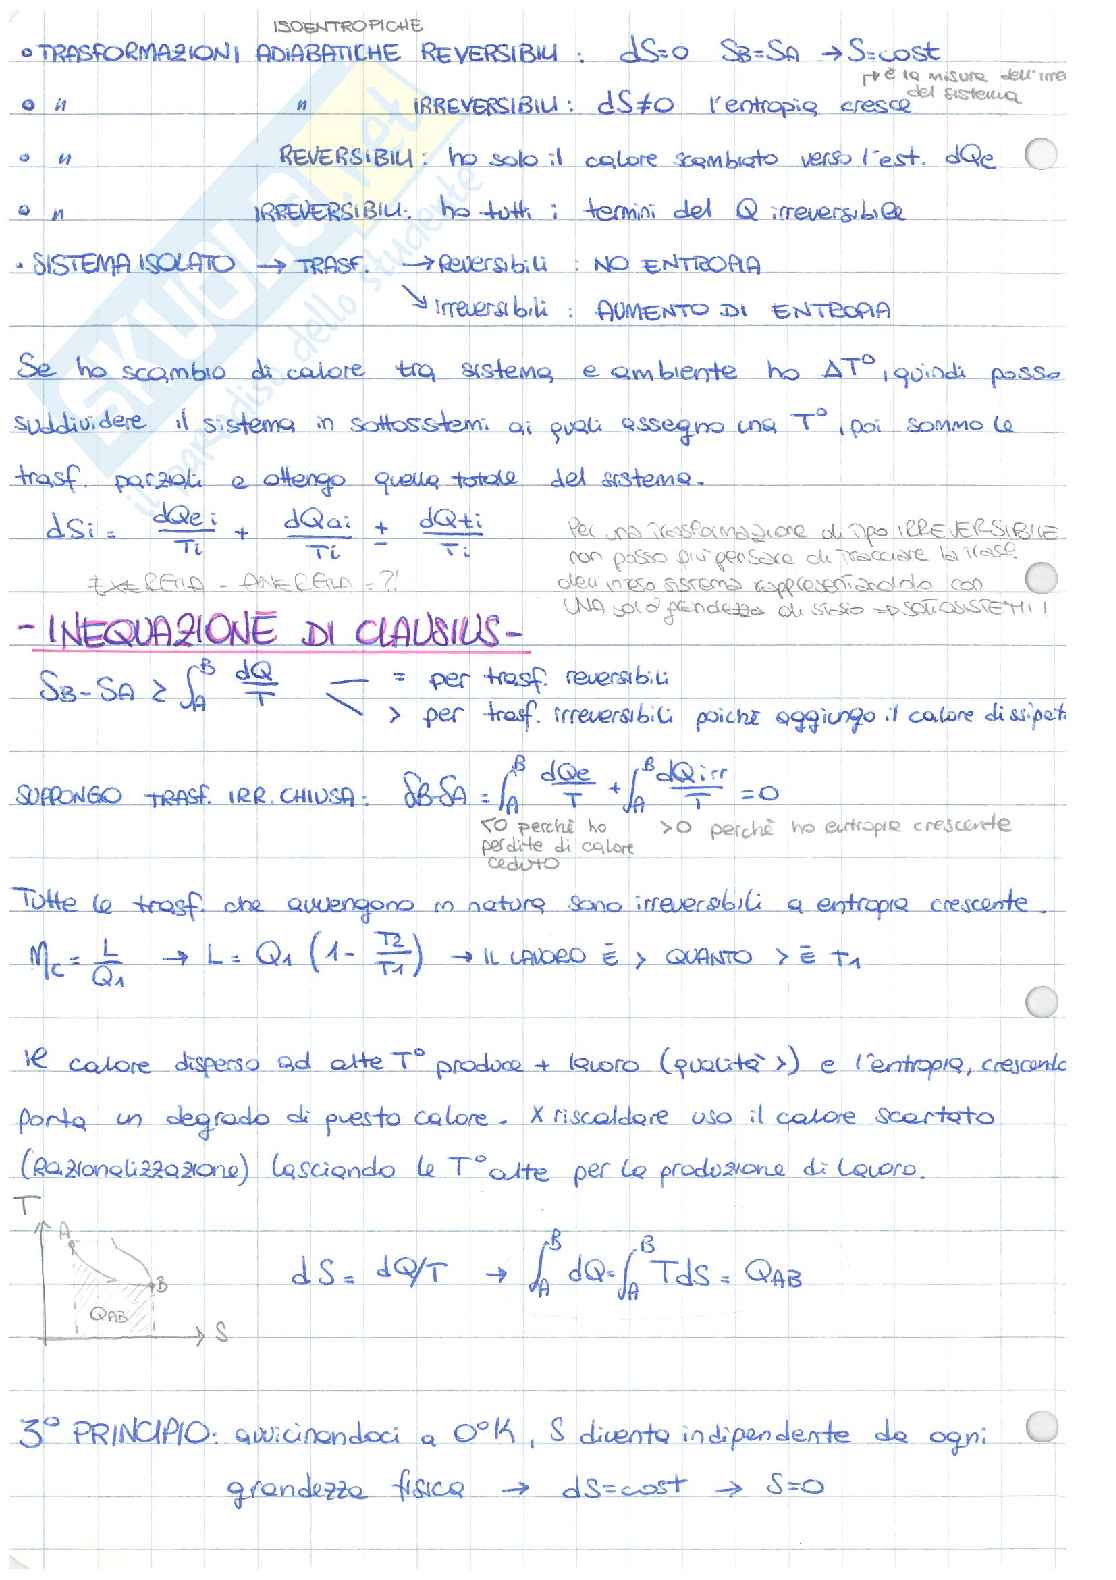 ISOENTROPICHE
• TRASFORMAZIONI ADIABATICHE REVERSIBILI : dS=0 SB=SA → S=cost
→ è la misura dell'irre
del sistema
• " " IRREVERSIBILI: dS≠0 l'entropia cresce
• " REVERSIBILI: ho solo il calore scambiato verso l'est. dQe
• " IRREVERSIBILI: ho tutti i termini del Q irreversibile
• SISTEMA ISOLATO → TRASF. → Reversibili : NO ENTROPIA
↘ Irreversibili : AUMENTO DI ENTROPIA
Se ho scambio di calore tra sistema e ambiente ho ΔT°, quindi posso
suddividere il sistema in sottosistemi ai quali assegno una T°, poi sommo le
trasf. parziali e ottengo quella totale del sistema.
dSi = dQei/Ti + dQai/Ti ± dQti/Ti
Per una trasformazione di tipo IRREVERSIBILE
non posso più pensare di tracciare la trasf.
dell'intero sistema rappresentandolo con
UNA sola grandezza di stato => SOTTOSISTEMI!
EXERGIA - ANERGIA = ?!
- INEQUAZIONE DI CLAUSIUS -
SB - SA ≥ ∫_A^B dQ/T = per trasf. reversibili
> per trasf. irreversibili poichè aggiungo il calore dissipat
SUPPONGO TRASF. IRR. CHIUSA: SB-SA = ∫_A^B dQe/T + ∫_A^B dQirr/T = 0
<0 perchè ho perdite di calore ceduto
>0 perchè ho entropia crescente
Tutte le trasf. che avvengono in natura sono irreversibili a entropia crescente.
ηc = L/Q1 → L = Q1 (1 - T2/T1) → IL LAVORO È > QUANTO > È T1
Il calore disperso ad alte T° produce + lavoro (qualità >) e l'entropia, crescendo
porta un degrado di questo calore. X riscaldare uso il calore scartato
(Razionalizzazione) lasciando le T° alte per la produzione di lavoro.
T
A
B
QAB
S
dS = dQ/T → ∫_A^B dQ = ∫_A^B TdS = QAB
3° PRINCIPIO: avvicinandoci a 0°K, S diventa indipendente da ogni
grandezza fisica → dS=cost → S=0
SKUOLA.net
il paradiso dello studente